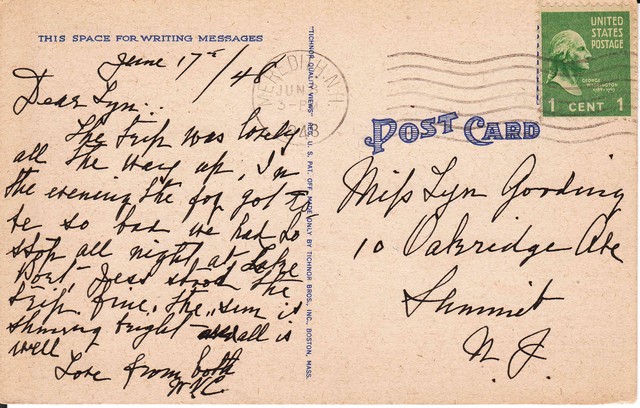 THIS SPACE FOR WRITING MESSAGES
June 17th/48
Dear Lyn..
The trip was lovely
all the way up, In
the evening the fog got to
be so bad we had to
stop all night at Lake
Port, Jess stood the
trip fine. The sun is
shining bright all is
well
Love from both
"TICHNOR QUALITY VIEWS" REG. U. S. PAT. OFF. MADE ONLY BY TICHNOR BROS., INC., BOSTON, MASS.
MEREDITH, N.H.
JUN
3-P
48
POST CARD
UNITED
STATES
POSTAGE
GEORGE
WASHINGTON
1 CENT 1
Miss Lyn Gooding
10 Oakridge Ave
Summit
N. J.